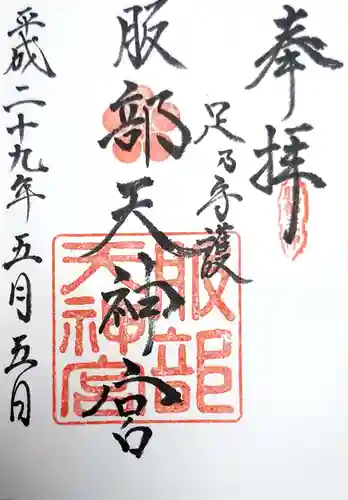 奉拝
足乃守護
服部天神宮
平成二十九年五月五日
服部
天神宮